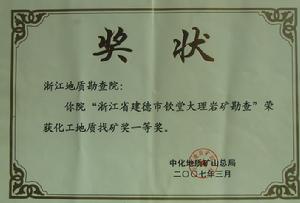 奖状
浙江地质勘查院：
你院“浙江省建德市钦堂大理岩矿勘查”荣
获化工地质找矿奖一等奖。
中化地质矿山总局
二〇〇七年三月